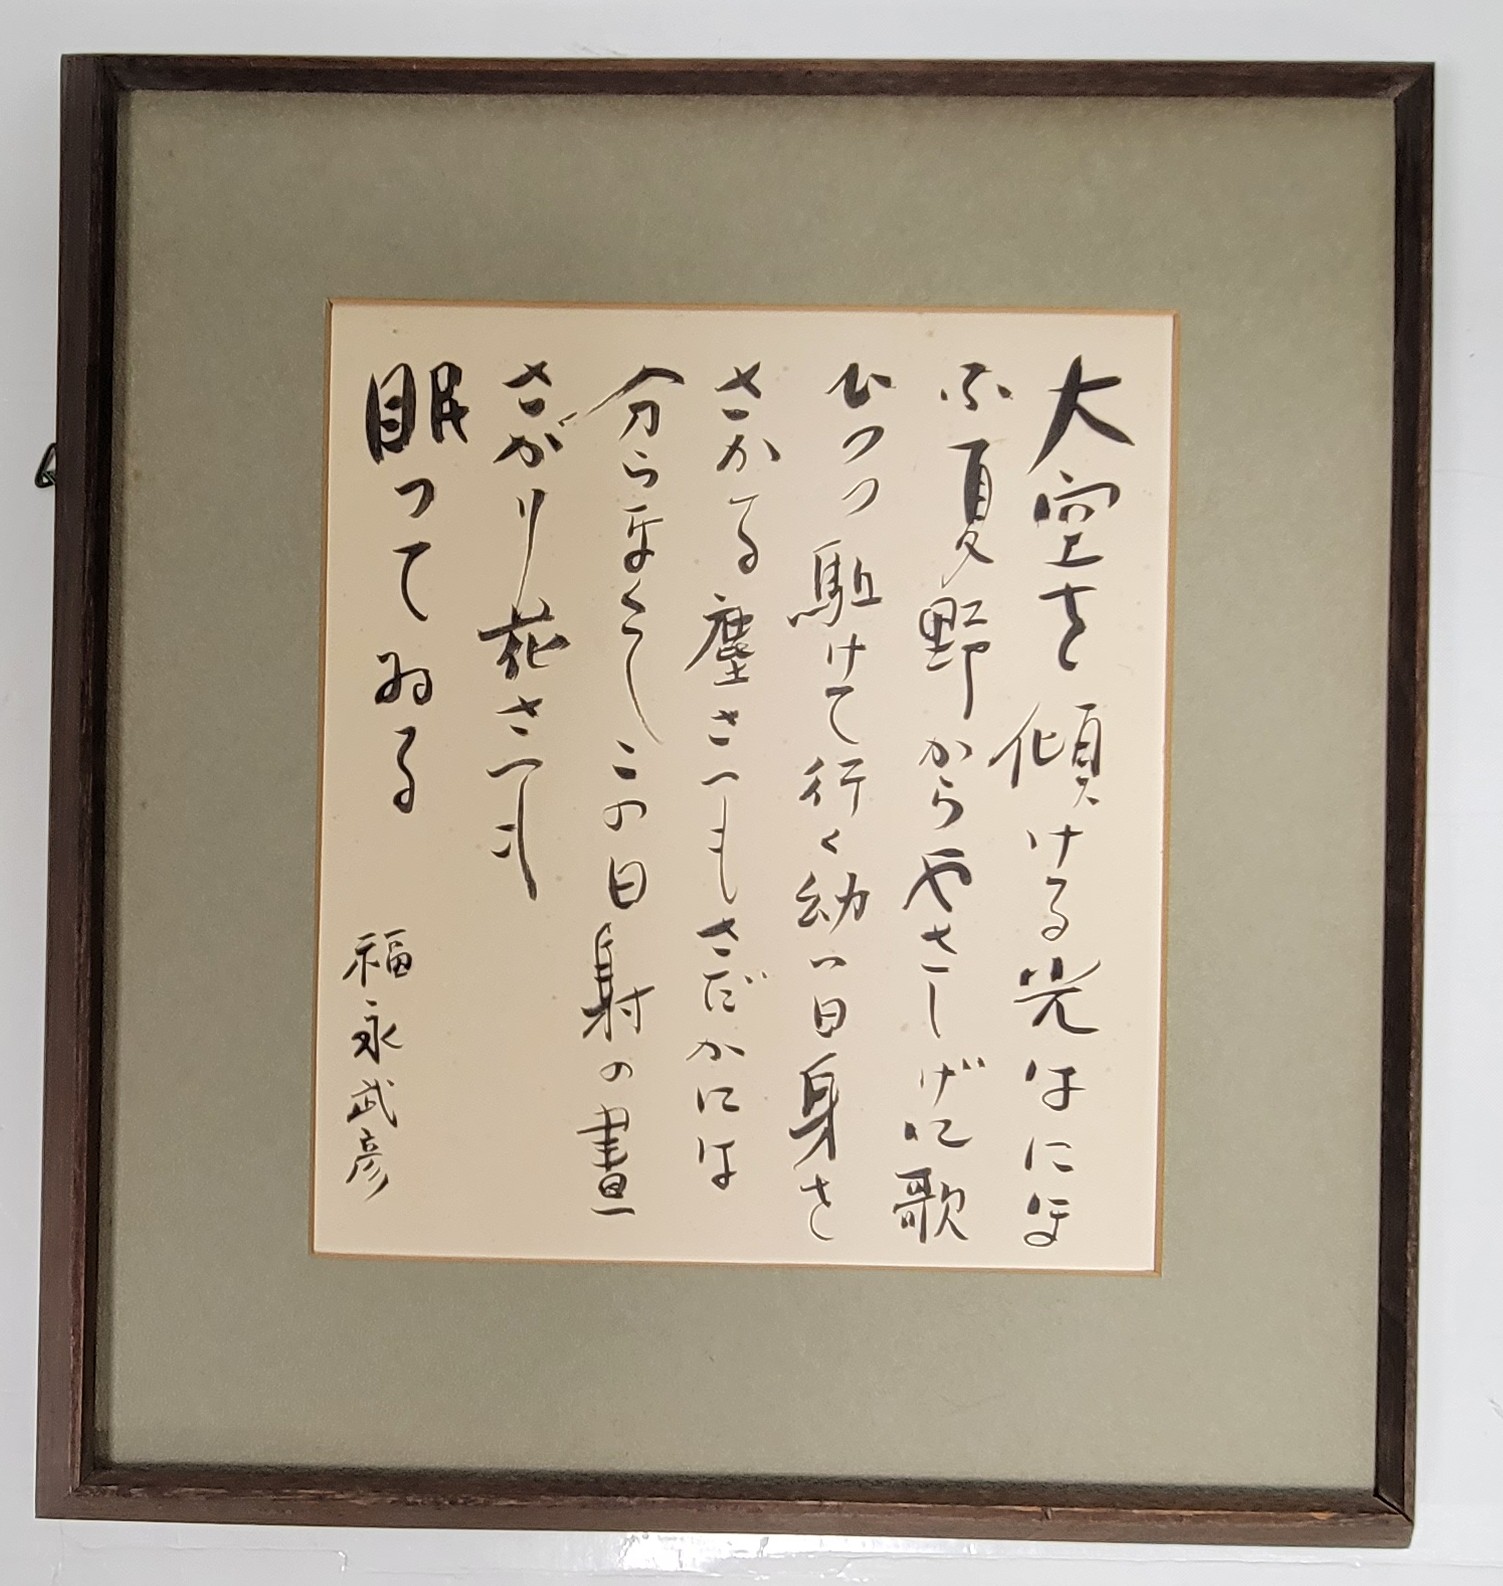 大空を傾ける光はにほ
ふ夏野からやさしげに歌
ひつつ駈けて行く幼い日身を
さかる塵さへもさだかには
分らなくしこの日射の晝
さがり花さへも
眠つてゐる
福永武彦